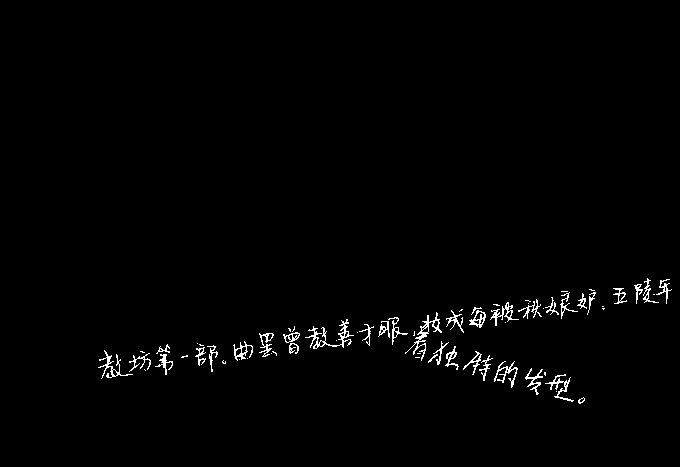 教坊第一部。曲罢曾教善才服，妆成每被秋娘妒。五陵年
着独特的发型。